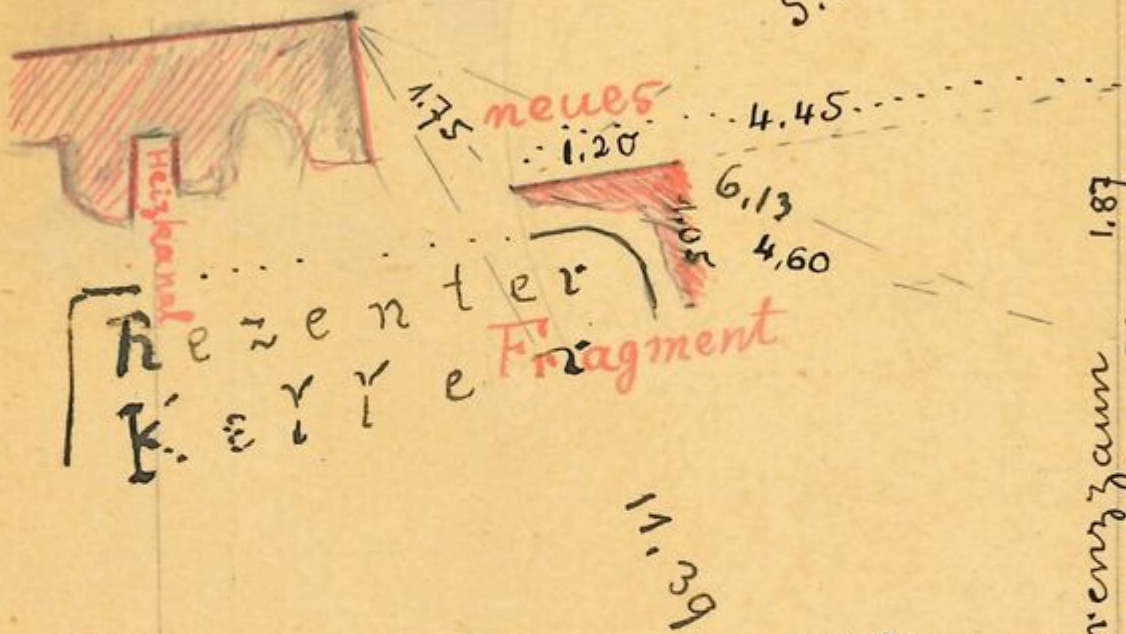 5.
1.75
neues
4.45
1.20
6,13
1,05
4,60
1,87
Heizkanal
Rezenter
Keller
Fragment
11.39
renzzaun